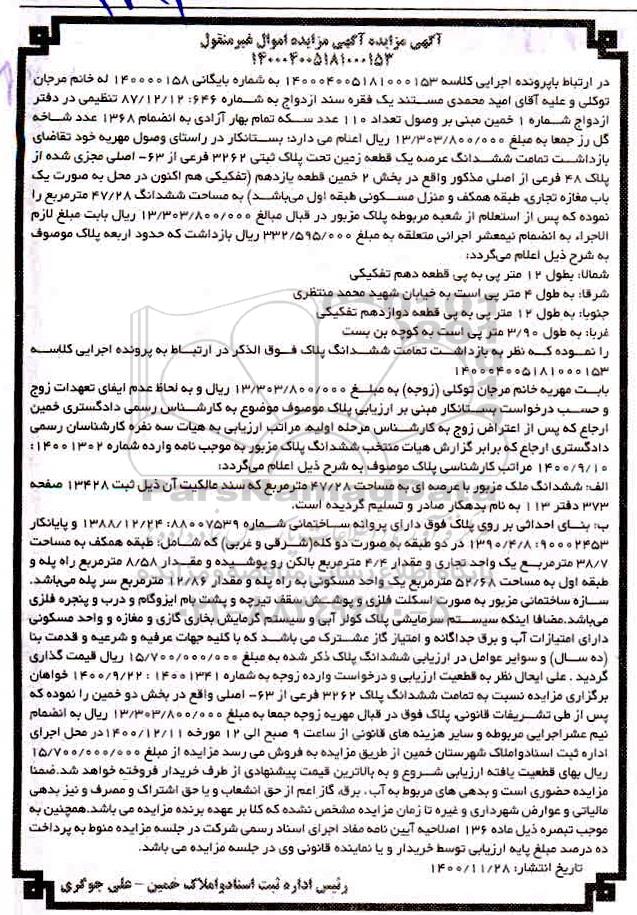 آگهی مزایده آگهی مزایده اموال غیرمنقول
۱۴۰۰۰۴۰۰۵۱۸۱۰۰۰۱۵۳
در ارتباط باپرونده اجرایی کلاسه ۱۴۰۰۰۴۰۰۵۱۸۱۰۰۰۱۵۳ به شماره بایگانی ۱۴۰۰۰۰۱۵۸ له خانم مرجان
توکلی و علیه آقای امید محمدی مستند یک فقره سند ازدواج به شماره ۶۴۶: ۸۷/۱۲/۱۲ تنظیمی در دفتر
ازدواج شماره ۱ خمین مبنی بر وصول تعداد ۱۱۰ عدد سکه تمام بهار آزادی به انضمام ۱۳۶۸ عدد شاخه
گل رز جمعا به مبلغ ۱۳/۳۰۳/۸۰۰/۰۰۰ ریال اعنام می دارد: بستانکار در راستای وصول مهریه خود تقاضای
بازداشت تمامت ششدانگ عرصه یک قطعه زمین تحت پلاک ثبتی ۳۲۶۲ فرعی از ۶۳- اصلی مجزی شده از
پلاک ۴۸ فرعی از اصلی مذکور واقع در بخش ۲ خمین قطعه یازدهم (تفکیکی هم اکنون در محل به صورت یک
باب مغازه تجاری، طبقه همکف و منزل مسکونی طبقه اول می‌باشد) به مساحت ششدانگ ۴۷/۲۸ مترمربع را
نموده که پس از استعلام از شعبه مربوطه پلاک مزبور در قبال مبالغ ۱۳/۳۰۳/۸۰۰/۰۰۰ ریال بابت مبلغ لازم
الاجراء به انضمام نیمعشر اجرائی متعلقه به مبلغ ۳۳۲/۵۹۵/۰۰۰ ریال بازداشت که حدود اربعه پلاک موصوف
به شرح ذیل اعلام می‌گردد:
شمالا: بطول ۱۲ متر پی به پی قطعه دهم تفکیکی
شرقا: به طول ۴ متر پی است به خیابان شهید محمد منتظری
جنوبا: به طول ۱۲ متر پی به پی قطعه دوازدهم تفکیکی
غربا: به طول ۳/۹۰ متر پی است به کوچه بن بست
را نموده که نظر به بازداشت تمامت ششدانگ پلاک فوق الذکر در ارتباط به پرونده اجرایی کلاسه
۱۴۰۰۰۴۰۰۵۱۸۱۰۰۰۱۵۳
بابت مهریه خانم مرجان توکلی (زوجه) به مبلغ ۱۳/۳۰۳/۸۰۰/۰۰۰ ریال و به لحاظ عدم ایفای تعهدات زوج
و حسب درخواست بستانکار مبنی بر ارزیابی پلاک موصوف موضوع به کارشناس رسمی دادگستری خمین
ارجاع که پس از اعتراض زوج به کارشناس مرحله اولیه، مراتب ارزیابی به هیات سه نفره کارشناسان رسمی
دادگستری ارجاع که برابر گزارش هیات منتخب ششدانگ پلاک مزبور به موجب نامه وارده شماره ۱۴۰۰۱۳۰۲:
۱۴۰۰/۹/۱۰ مراتب کارشناسی پلاک موصوف به شرح ذیل اعلام می‌گردد:
الف: ششدانگ ملک مزبور با عرصه ای به مساحت ۴۷/۲۸ مترمربع که سند مالکیت آن ذیل ثبت ۱۳۴۲۸ صفحه
۳۷۳ دفتر ۱۱۳ به نام بدهکار صادر و تسلیم گردیده است.
ب: بنای احداثی بر روی پلاک فوق دارای پروانه ساختمانی شماره ۸۸۰۰۷۵۳۹: ۱۳۸۸/۱۲/۲۴ و پایانکار
۹۰۰۰۲۴۵۳: ۱۳۹۰/۴/۸ در دو طبقه به صورت دو کله(شرقی و غربی) که شامل: طبقه همکف به مساحت
۳۸/۷ مترمربع یک واحد تجاری و مقدار ۴/۴ مترمربع بالکن رو پوشیده و مقدار ۸/۵۸ مترمربع راه پله و
طبقه اول به مساحت ۵۲/۶۸ مترمربع یک واحد مسکونی به راه پله و مقدار ۱۲/۸۶ مترمربع سر پله می‌باشد.
سازه ساختمانی مزبور به صورت اسکلت فلزی و پوشش سقف تیرچه و پشت بام ایزوگام و درب و پنجره فلزی
می‌باشد.مضافا اینکه سیستم سرمایشی پلاک کولر آبی و سیستم گرمایش بخاری گازی و مغازه و واحد مسکونی
دارای امتیازات آب و برق جداگانه و امتیاز گاز مشترک می باشد که با کلیه جهات عرفیه و شرعیه و قدمت بنا
(ده سال) و سوایر عوامل در ارزیابی ششدانگ پلاک ذکر شده به مبلغ ۱۵/۷۰۰/۰۰۰/۰۰۰ ریال قیمت گذاری
گردید . علی ایحال نظر به قطعیت ارزیابی و درخواست وارده زوجه به شماره ۱۴۰۰۱۳۴۱ : ۱۴۰۰/۹/۲۲ خواهان
برگزاری مزایده نسبت به تمامت ششدانگ پلاک ۳۲۶۲ فرعی از ۶۳- اصلی واقع در بخش دو خمین را نموده که
پس از طی تشریفات قانونی، پلاک فوق در قبال مهریه زوجه جمعا به مبلغ ۱۳/۳۰۳/۸۰۰/۰۰۰ ریال به انضمام
نیم عشراجرایی مربوطه و سایر هزینه های قانونی از ساعت ۹ صبح الی ۱۲ مورخه ۱۴۰۰/۱۲/۱۱در محل اجرای
اداره ثبت اسنادواملاک شهرستان خمین از طریق مزایده به فروش می رسد مزایده از مبلغ ۱۵/۷۰۰/۰۰۰/۰۰۰
ریال بهای قطعیت یافته ارزیابی شروع و به بالاترین قیمت پیشنهادی از طرف خریدار فروخته خواهد شد.ضمنا
مزایده حضوری است و بدهی های مربوط به آب، برق، گاز اعم از حق انشعاب و یا حق اشتراک و مصرف و نیز بدهی
مالیاتی و عوارض شهرداری و غیره تا زمان مزایده مشخص نشده که کلا بر عهده برنده مزایده می باشد.همچنین به
موجب تبصره ذیل ماده ۱۳۶ اصلاحیه آیین نامه مفاد اجرای اسناد رسمی شرکت در جلسه مزایده منوط به پرداخت
ده درصد مبلغ پایه ارزیابی توسط خریدار و یا نماینده قانونی وی در جلسه مزایده می باشد.
تاریخ انتشار: ۱۴۰۰/۱۱/۲۸
رئیس اداره ثبت اسنادواملاک خمین - علی جوگری